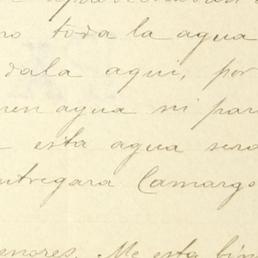 o toda la agua
dala aqui, por
en agua ni par
esta agua ser
ntregara Camargo
enores. Me esta